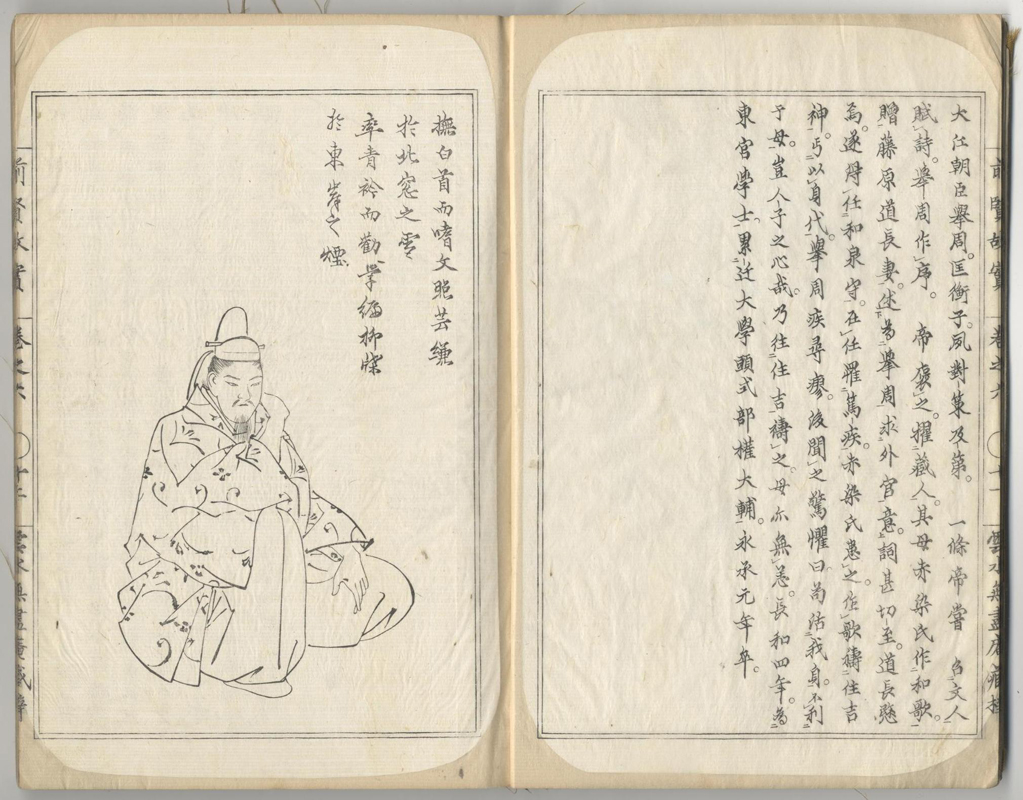 大江朝臣舉周。匡衡子。夙對策及第。 一條帝嘗 召文人
賦詩。舉周作序。 帝褒之。擢藏人。其母赤染氏作和歌。
贈藤原道長妻。述為舉周求外官意。詞甚切至。道長愍
焉。遂得任和泉守。在任罹篤疾。赤染氏患之。作歌禱住吉
神。丐以身代。舉周疾尋瘳。後聞之驚懼曰。苟活我身。不利
于母。豈人子之心哉。乃往住吉禱之。母亦無恙。長和四年。為
東宮學士。累迁大學頭式部權大輔。永承元年卒。
撫白首而嗜文照芸縑
於北窓之雪
率青衿而勸學編柳牒
於東岸之煙
前賢故實 卷之六 十一 雲水無盡庵藏梓
前賢故實 卷之六 十二 雲水無盡庵藏梓